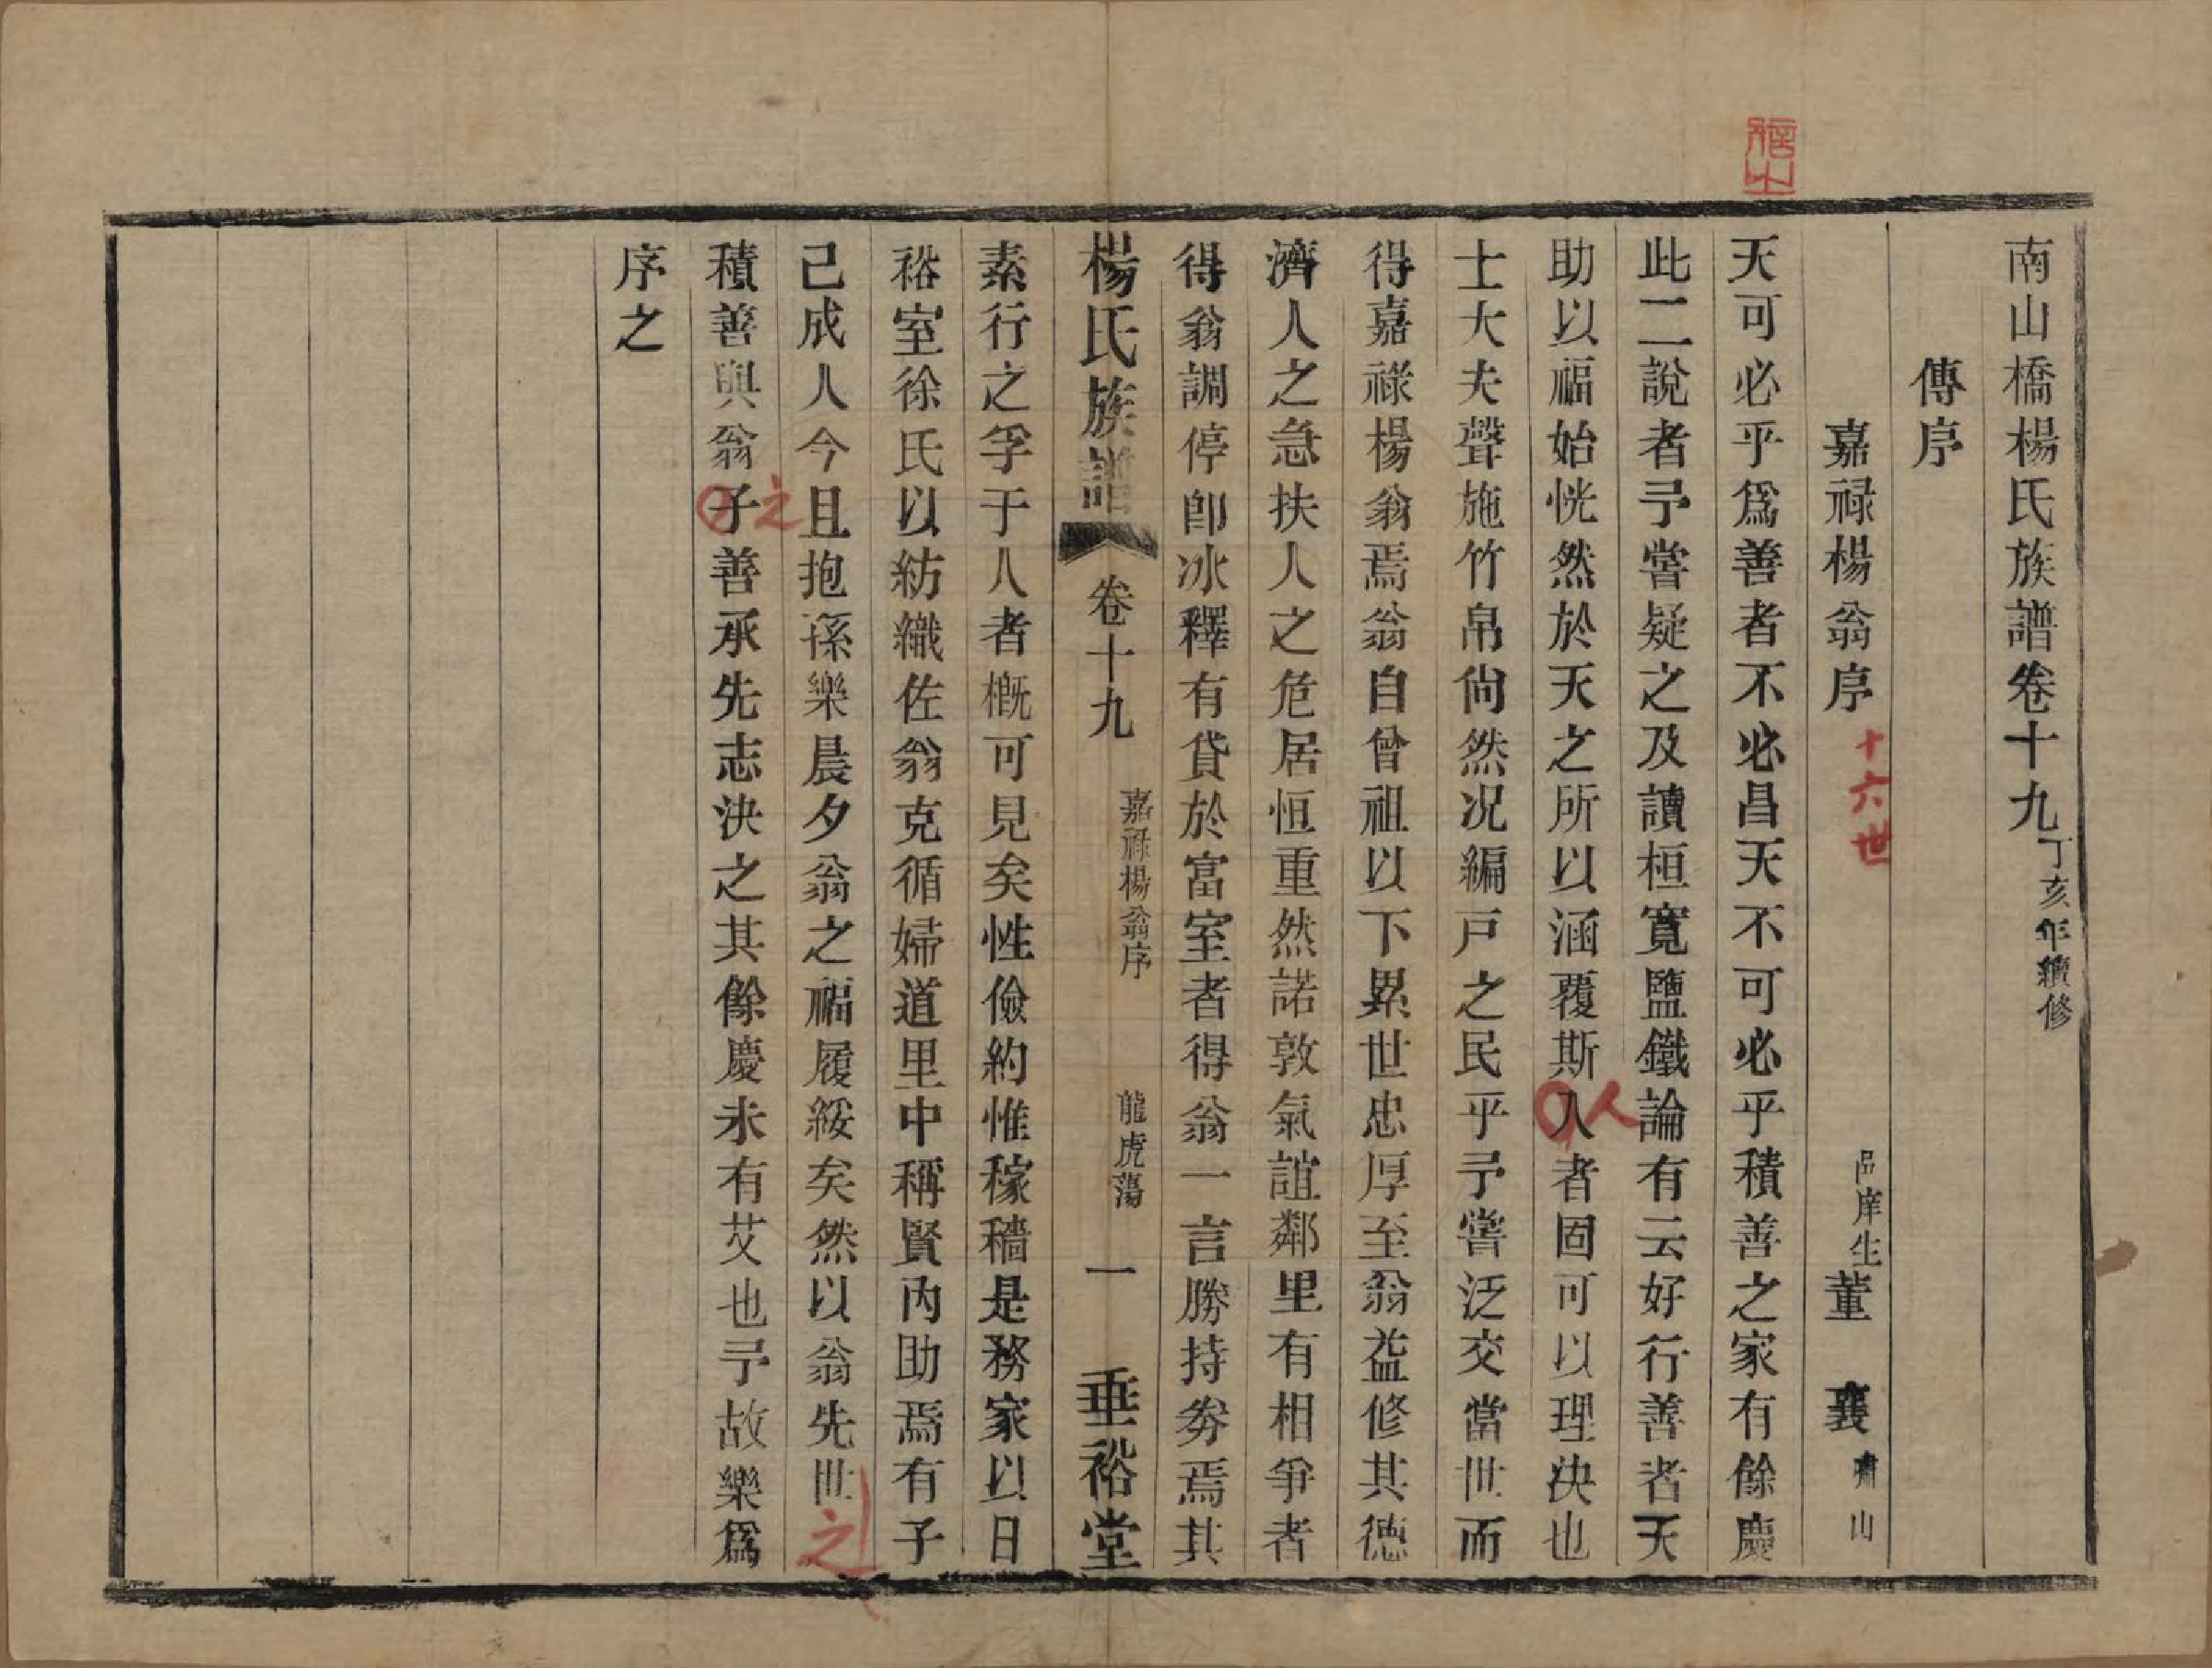 南山橋楊氏族譜卷十九丁亥年續修
傳序
嘉祿楊翁序 十六世 邑庠生董襄山
天可必乎爲善者不必昌天不可必乎積善之家有餘慶
此二說者予嘗疑之及讀桓寬鹽鐵論有云好行善者天
助以福始恍然於天之所以涵覆斯入人者固可以理決也
士大夫聲施竹帛尙然况編戸之民乎予嘗泛交當世而
得嘉祿楊翁焉翁自曾祖以下累世忠厚至翁益修其德
濟人之急扶人之危居恒重然諾敦氣誼鄰里有相爭者
得翁調停卽冰釋有貸於富室者得翁一言勝持劵焉其
楊氏族譜 卷十九 嘉祿楊翁序 龍虎蕩 一 垂裕堂
素行之孚于人者槪可見矣性儉約惟稼穡是務家以日
裕室徐氏以紡織佐翁克循婦道里中稱賢內助焉有子
己成人今且抱孫樂晨夕翁之福履綏矣然以翁先世之
積善與翁子之善承先志決之其餘慶未有艾也予故樂爲
序之